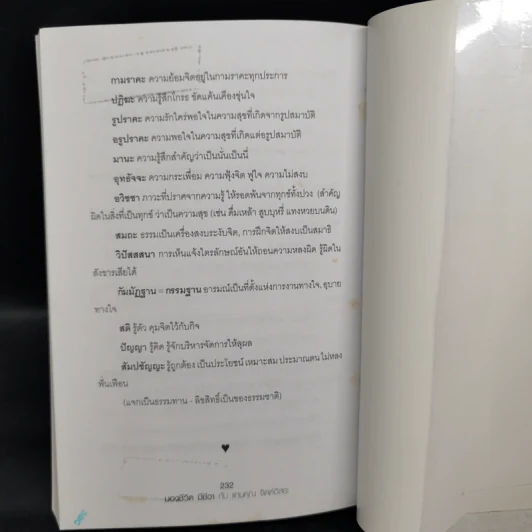 กามราคะ ความย้อมจิตอยู่ในกามราคะทุกประการ
ปฏิฆะ ความรู้สึกโกรธ ขัดแค้นเคืองขุ่นใจ
รูปราคะ ความรักใคร่พอใจในความสุขที่เกิดจากรูปสมาบัติ
อรูปราคะ ความพอใจในความสุขที่เกิดแต่อรูปสมาบัติ
มานะ ความรู้สึกสำคัญว่าเป็นนั่นเป็นนี่
อุทธัจจะ ความกระเพื่อม ความฟุ้งจิต ฟูใจ ความไม่สงบ
อวิชชา ภาวะที่ปราศจากความรู้ ให้รอดพ้นจากทุกข์ทั้งปวง (สำคัญ
ผิดในสิ่งที่เป็นทุกข์ ว่าเป็นความสุข (เช่น ดื่มเหล้า สูบบุหรี่ แทงหวยบนดิน)
สมถะ ธรรมเป็นเครื่องสงบระงับจิต, การฝึกจิตให้สงบเป็นสมาธิ
วิปัสสสนา การเห็นแจ้งไตรลักษณ์อันให้ถอนความหลงผิด รู้ผิดใน
สังขารเสียได้
กัมมัฏฐาน = กรรมฐาน อารมณ์เป็นที่ตั้งแห่งการงานทางใจ, อุบาย
ทางใจ
สติ รู้ตัว คุมจิตไว้กับกิจ
ปัญญา รู้คิด รู้จักบริหารจัดการให้ลุผล
สัมปชัญญะ รู้ถูกต้อง เป็นประโยชน์ เหมาะสม ประมาณตน ไม่หลง
ฟั่นเฟือน
(แจกเป็นธรรมทาน - ลิขสิทธิ์เป็นของธรรมชาติ)
♥
232
มองชีวิต มีชีวา กับ แทนคุณ จิตต์อิสระ